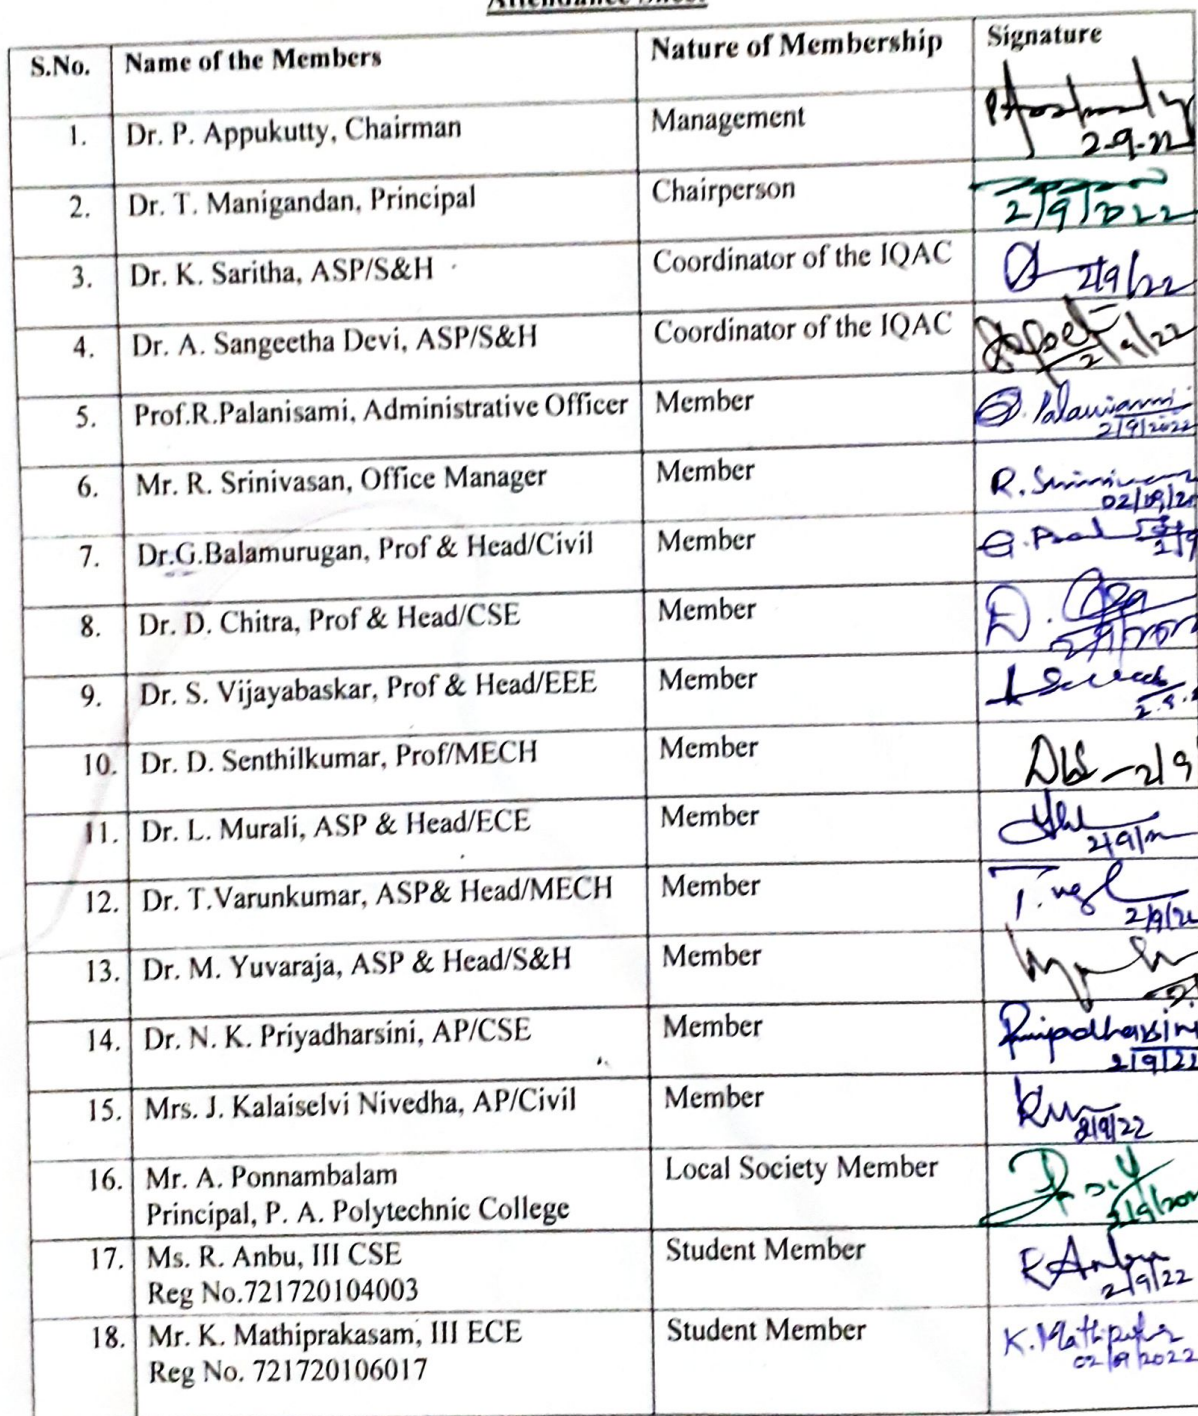 Attendance Sheet
S.No. Name of the Members Nature of Membership Signature
1. Dr. P. Appukutty, Chairman Management
2-9-22
2. Dr. T. Manigandan, Principal Chairperson
2/9/2022
3. Dr. K. Saritha, ASP/S&H Coordinator of the IQAC 2/9/22
4. Dr. A. Sangeetha Devi, ASP/S&H Coordinator of the IQAC
2/9/22
5. Prof.R.Palanisami, Administrative Officer Member Palanisami
2/9/2022
6. Mr. R. Srinivasan, Office Manager Member R. Srinivasan
02/09/20
7. Dr.G.Balamurugan, Prof & Head/Civil Member
2/9
8. Dr. D. Chitra, Prof & Head/CSE Member D.
9. Dr. S. Vijayabaskar, Prof & Head/EEE Member
10. Dr. D. Senthilkumar, Prof/MECH Member 2/9
11. Dr. L. Murali, ASP & Head/ECE Member
2/9/
12. Dr. T.Varunkumar, ASP& Head/MECH Member
2/9/22
13. Dr. M. Yuvaraja, ASP & Head/S&H Member
14. Dr. N. K. Priyadharsini, AP/CSE Member Priyadharsini
2/9/22
15. Mrs. J. Kalaiselvi Nivedha, AP/Civil Member
2/9/22
16. Mr. A. Ponnambalam Local Society Member
Principal, P. A. Polytechnic College
17. Ms. R. Anbu, III CSE Student Member R Anbu
Reg No.721720104003 2/9/22
18. Mr. K. Mathiprakasam, III ECE Student Member K. Mathi
Reg No. 721720106017 02/09/2022